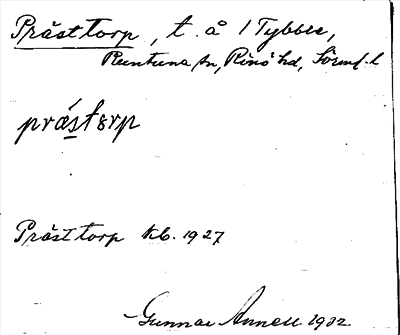 Prästtorp, t. å 1 Tybble,
Runtuna sn, Rönö hd, Sörml. l
prástɵrp
Prästtorp kb. 1927
Gunnar Annell 1932